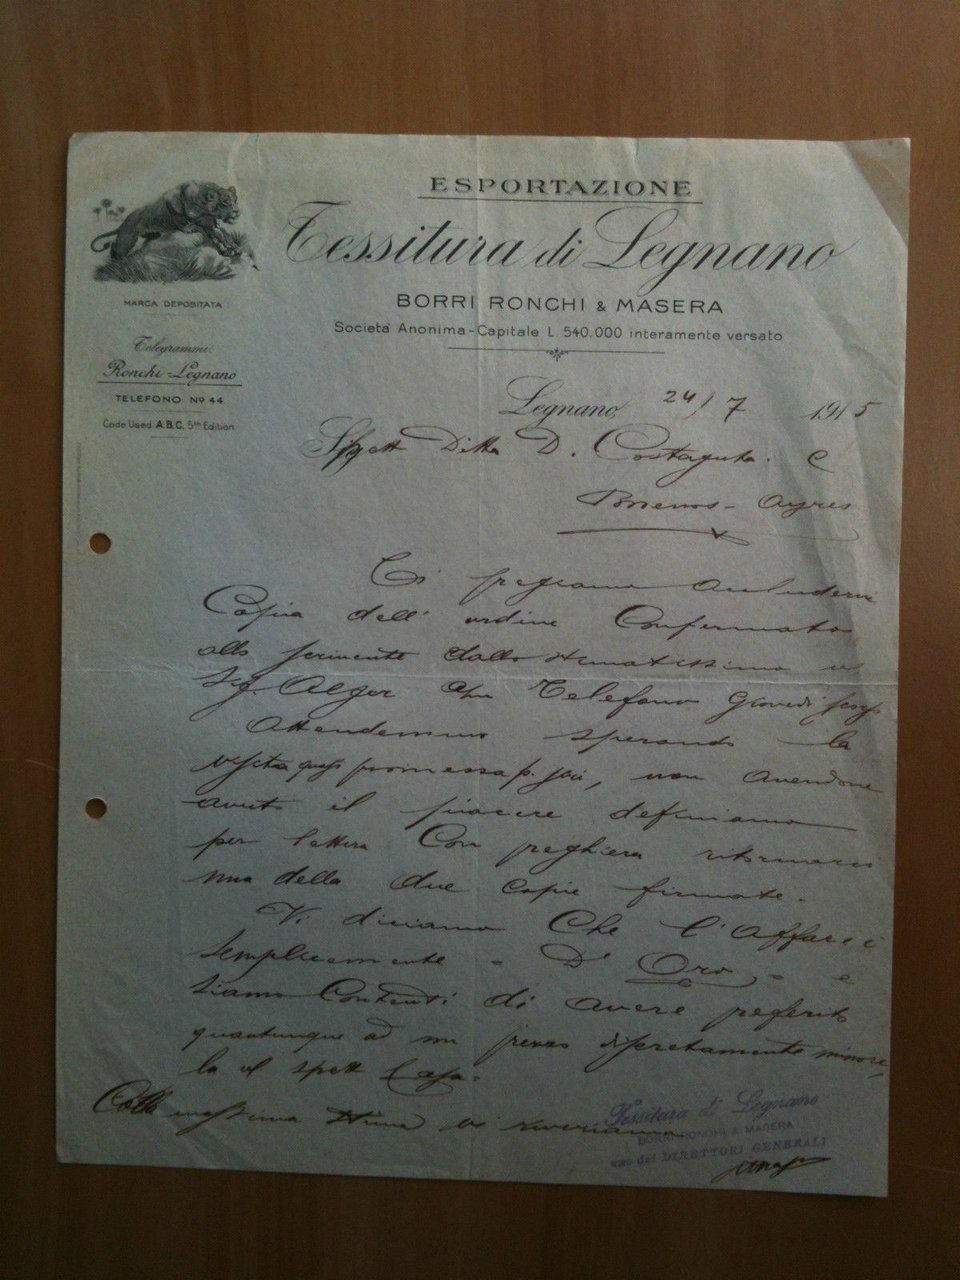 ESPORTAZIONE
Tessitura di Legnano
BORRI RONCHI & MASERA
Società Anonima - Capitale L. 540.000 interamente versato
MARCA DEPOSITATA
Telegrammi:
Ronchi-Legnano
TELEFONO Nº 44
Code Used A.B.C. 5th Edition
Legnano, 24/7 1915
Spett Ditta D. Costaguta. C
Buenos-Ayres
Ci pregiamo accludervi
Copia dell'ordine Confermato
allo scrivente dallo stimatissimo
Sig. Alger Telefono Giovedì scorso
Attendemmo sperando la
promessa p. non avendone
avuto il piacere definiamo
per lettera Con preghiera ritornarci
una delle due copie firmate.
Vi diciamo Che l'Affare è
semplicemente "D'Oro" e
siamo Contenti di avere preferito
quantunque ad un prezzo discretamente minore,
la Spett Casa.
Colla massima Stima vi riveriamo
Tessitura di Legnano
BORRI RONCHI & MASERA
uno dei DIRETTORI GENERALI